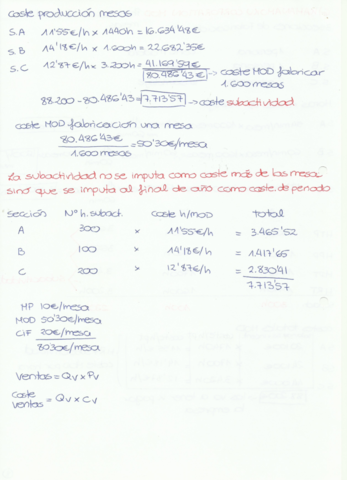 coste producción mesas
S.A 11'55€/h x 1440h = 16.634'48€
S.B 14'18€/h x 1.600h = 22.682'35€
S.C 12'87€/h x 3.200h = 41.169'59€
80.486'43€ → coste MOD fabricar
1.600 mesas
88.200 - 80.486'43 = 7.713'57 → coste subactividad
coste MOD fabricación una mesa
80.486'43€ = 50'30€/mesa
1.600 mesas
La subactividad no se imputa como coste más de las mesa
sino que se imputa al final de año como coste de periodo
sección Nº h. subact. coste h/MOD total
A 300 x 11'55€/h = 3.465'52
B 100 x 14'18€/h = 1.417'65
C 200 x 12'87€/h = 2.830'41
7.713'57
MP 10€/mesa
MOD 50'30€/mesa
CIF 20€/mesa
80'30€/mesa
Ventas = Qv x Pv
Coste ventas = Qv x Cv